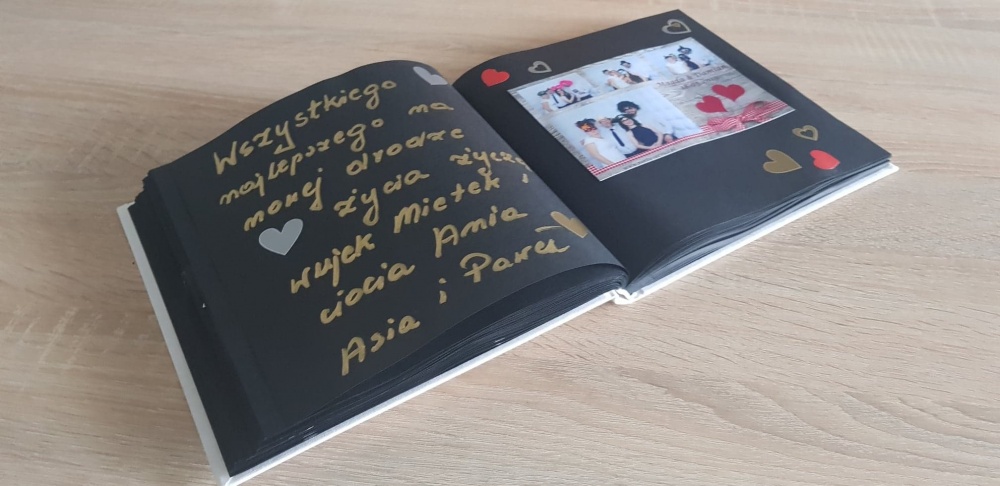 Wszystkiego
najlepszego na
nowej drodze
życia życzą
wujek Mietek i
ciocia Ania
Asia i Paweł